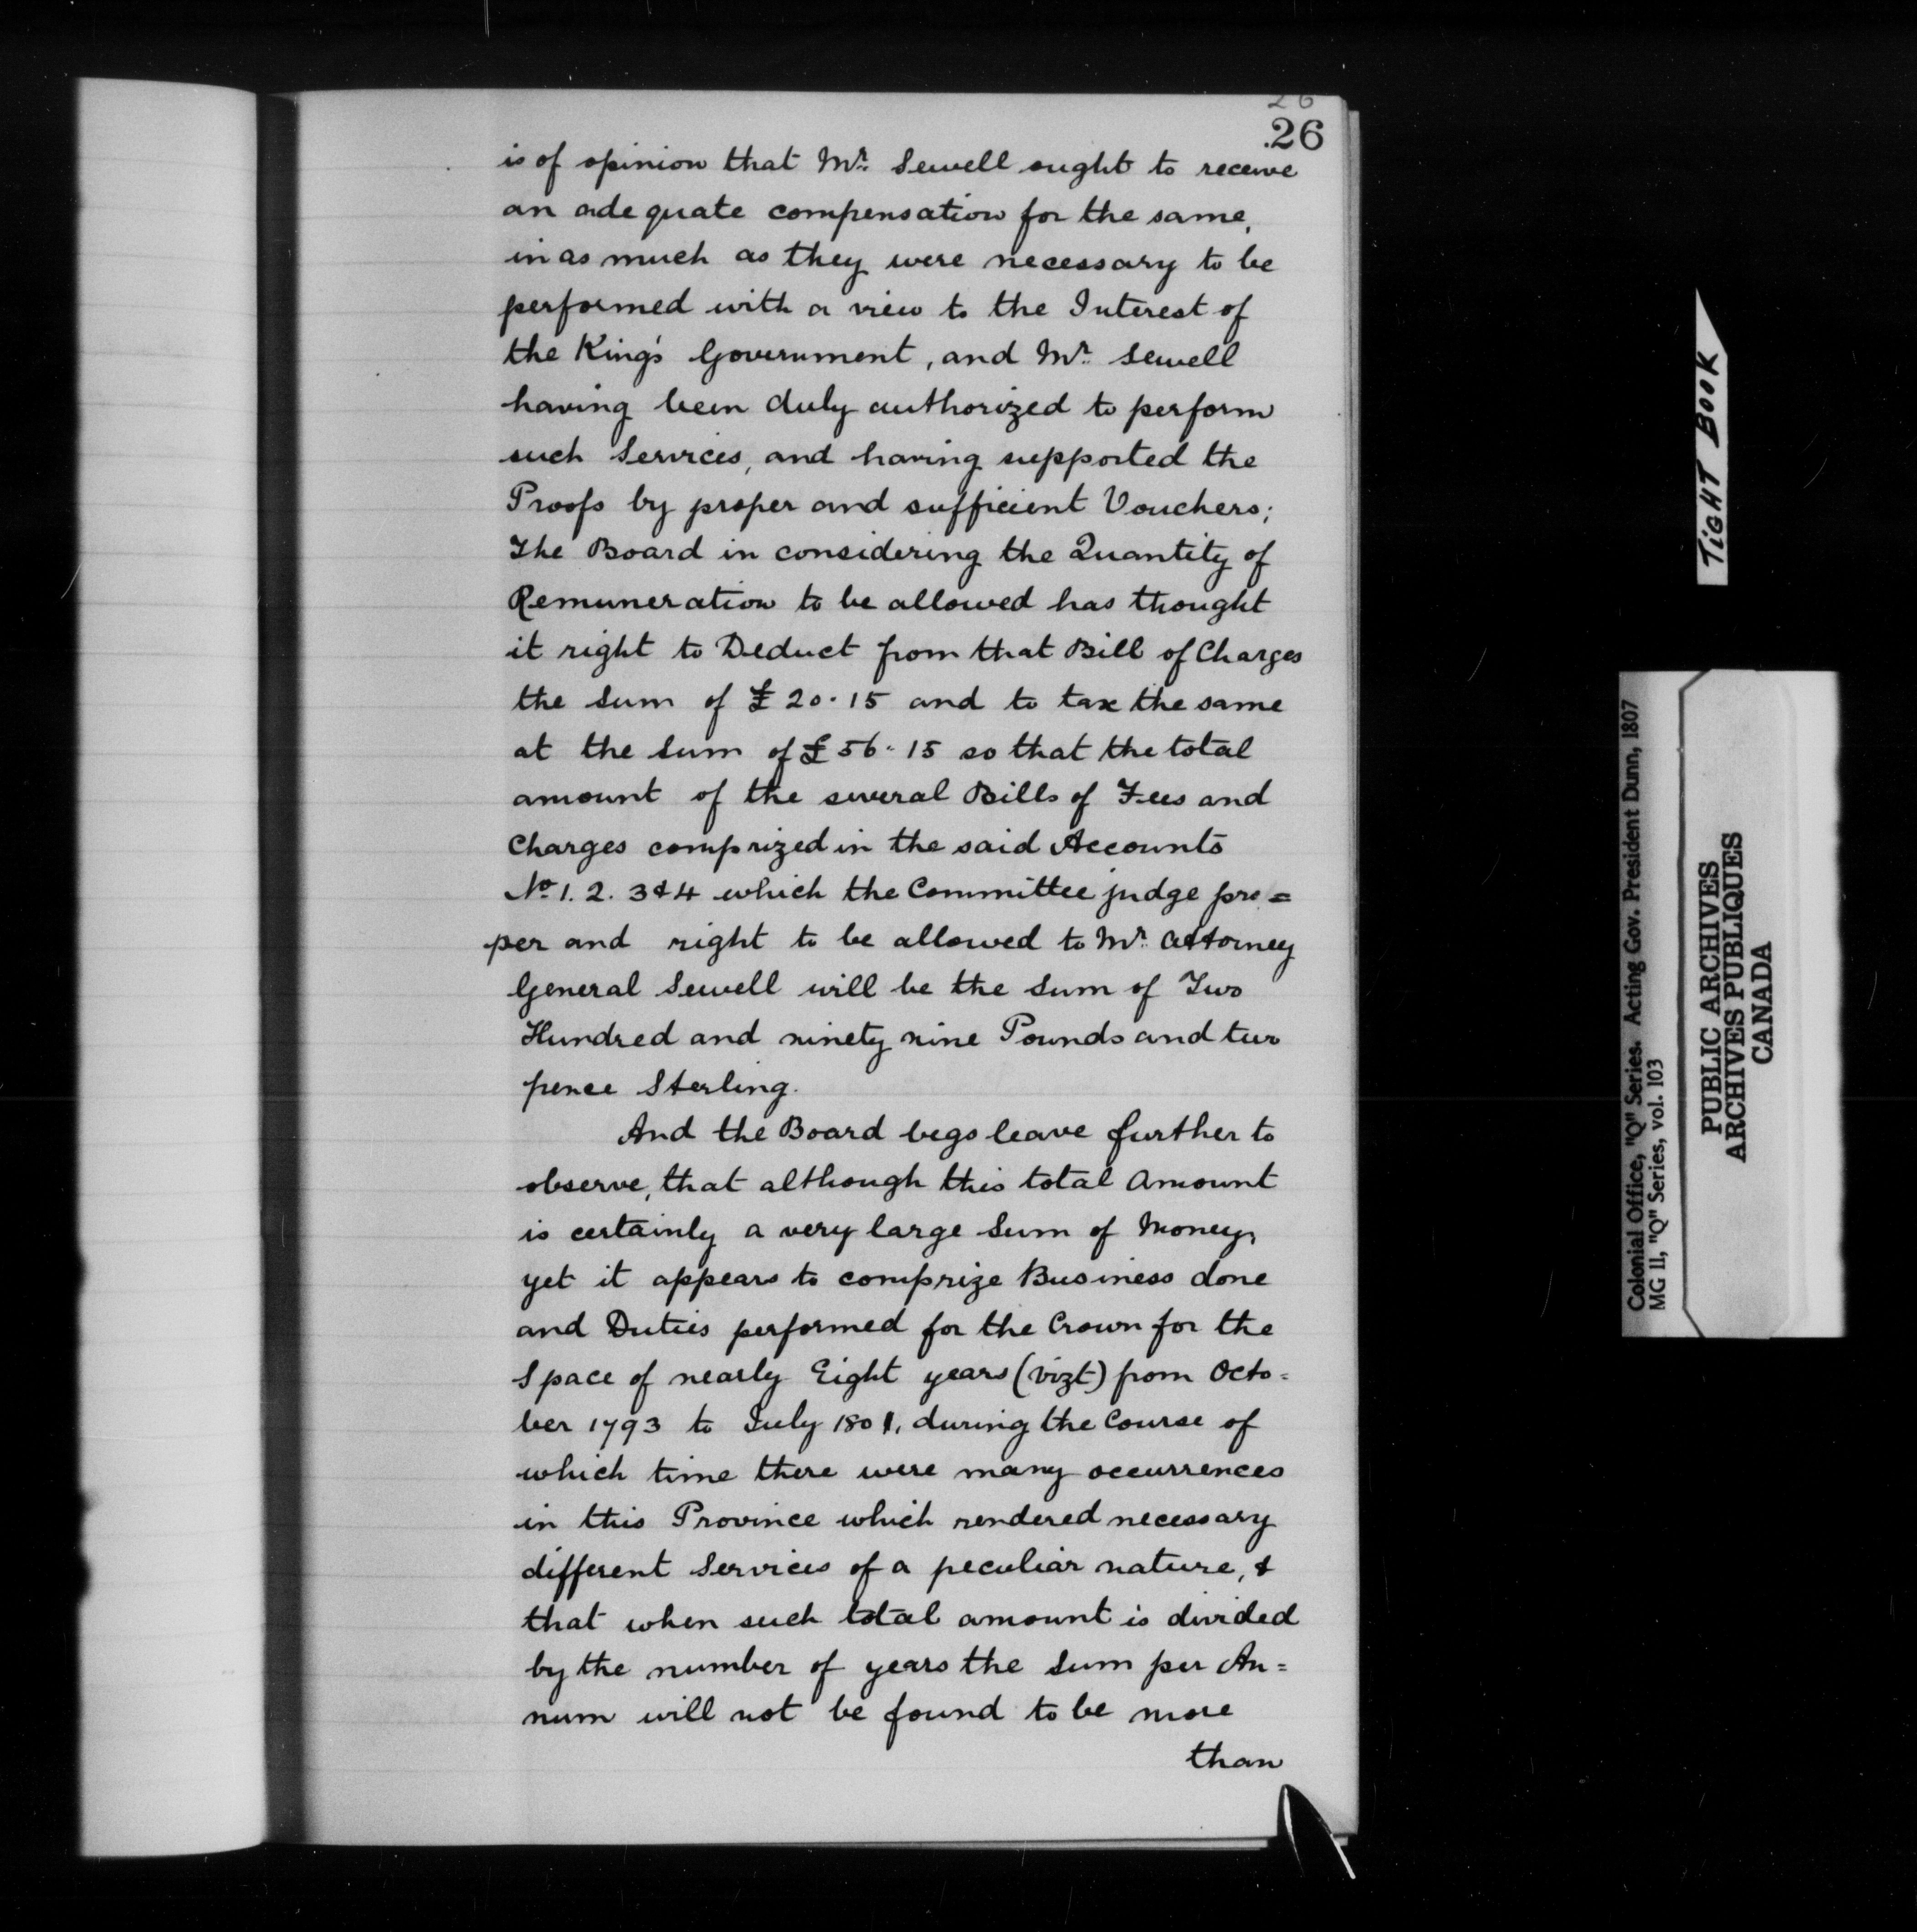 26
26
is of opinion that Mr. Sewell ought to receive
an adequate compensation for the same,
in as much as they were necessary to be
performed with a view to the Interest of
the King's Government, and Mr. Sewell
having been duly authorized to perform
such Services, and having supported the
Proofs by proper and sufficient Vouchers;
The Board in considering the Quantity of
Remuneration to be allowed has thought
it right to Deduct from that Bill of Charges
the Sum of £20.15 and to tax the same
at the Sum of £56.15 so that the total
amount of the several Bills of Fees and
Charges comprized in the said Accounts
No. 1. 2. 3 & 4 which the Committee judge pro=
per and right to be allowed to Mr. Attorney
General Sewell will be the Sum of Two
Hundred and ninety nine Pounds and two
pence Sterling.
And the Board begs leave further to
observe, that although this total Amount
is certainly a very large Sum of Money,
yet it appears to comprize Business done
and Duties performed for the Crown for the
Space of nearly Eight years (vizt) from Octo=
ber 1793 to July 1801, during the Course of
which time there were many occurrences
in this Province which rendered necessary
different Services of a peculiar nature, &
that when such total amount is divided
by the number of years the Sum per An=
num will not be found to be more
than
TIGHT BOOK
Colonial Office, "Q" Series. Acting Gov. President Dunn, 1807
MG 11, "Q" Series, vol. 103
PUBLIC ARCHIVES
ARCHIVES PUBLIQUES
CANADA